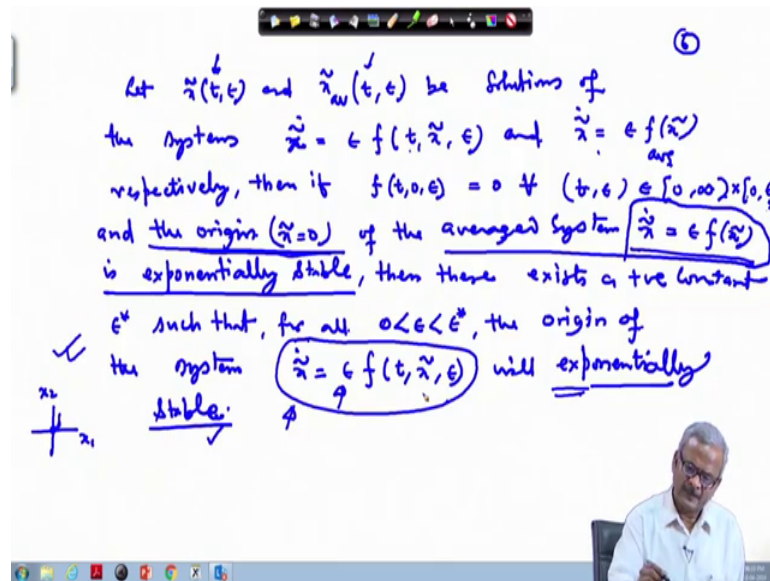 ⑥
Let x̃(t,ϵ) and x̃av(t,ϵ) be Solutions of
the systems ẋ̃ = ϵ f(t, x̃, ϵ) and ẋ̃ = ϵ f(x̃)
avg
respectively, then if f(t,0,ϵ) = 0 ∀ (t,ϵ) ∈ [0,∞)×[0,ϵ
and the origin (x̃=0) of the averaged System ẋ̃ = ϵ f(x̃)
is exponentially stable, then there exists a +ve constant
ϵ* such that, for all 0<ϵ<ϵ*, the origin of
the system ẋ̃ = ϵ f(t, x̃, ϵ) will exponentially
stable.
x2
x1